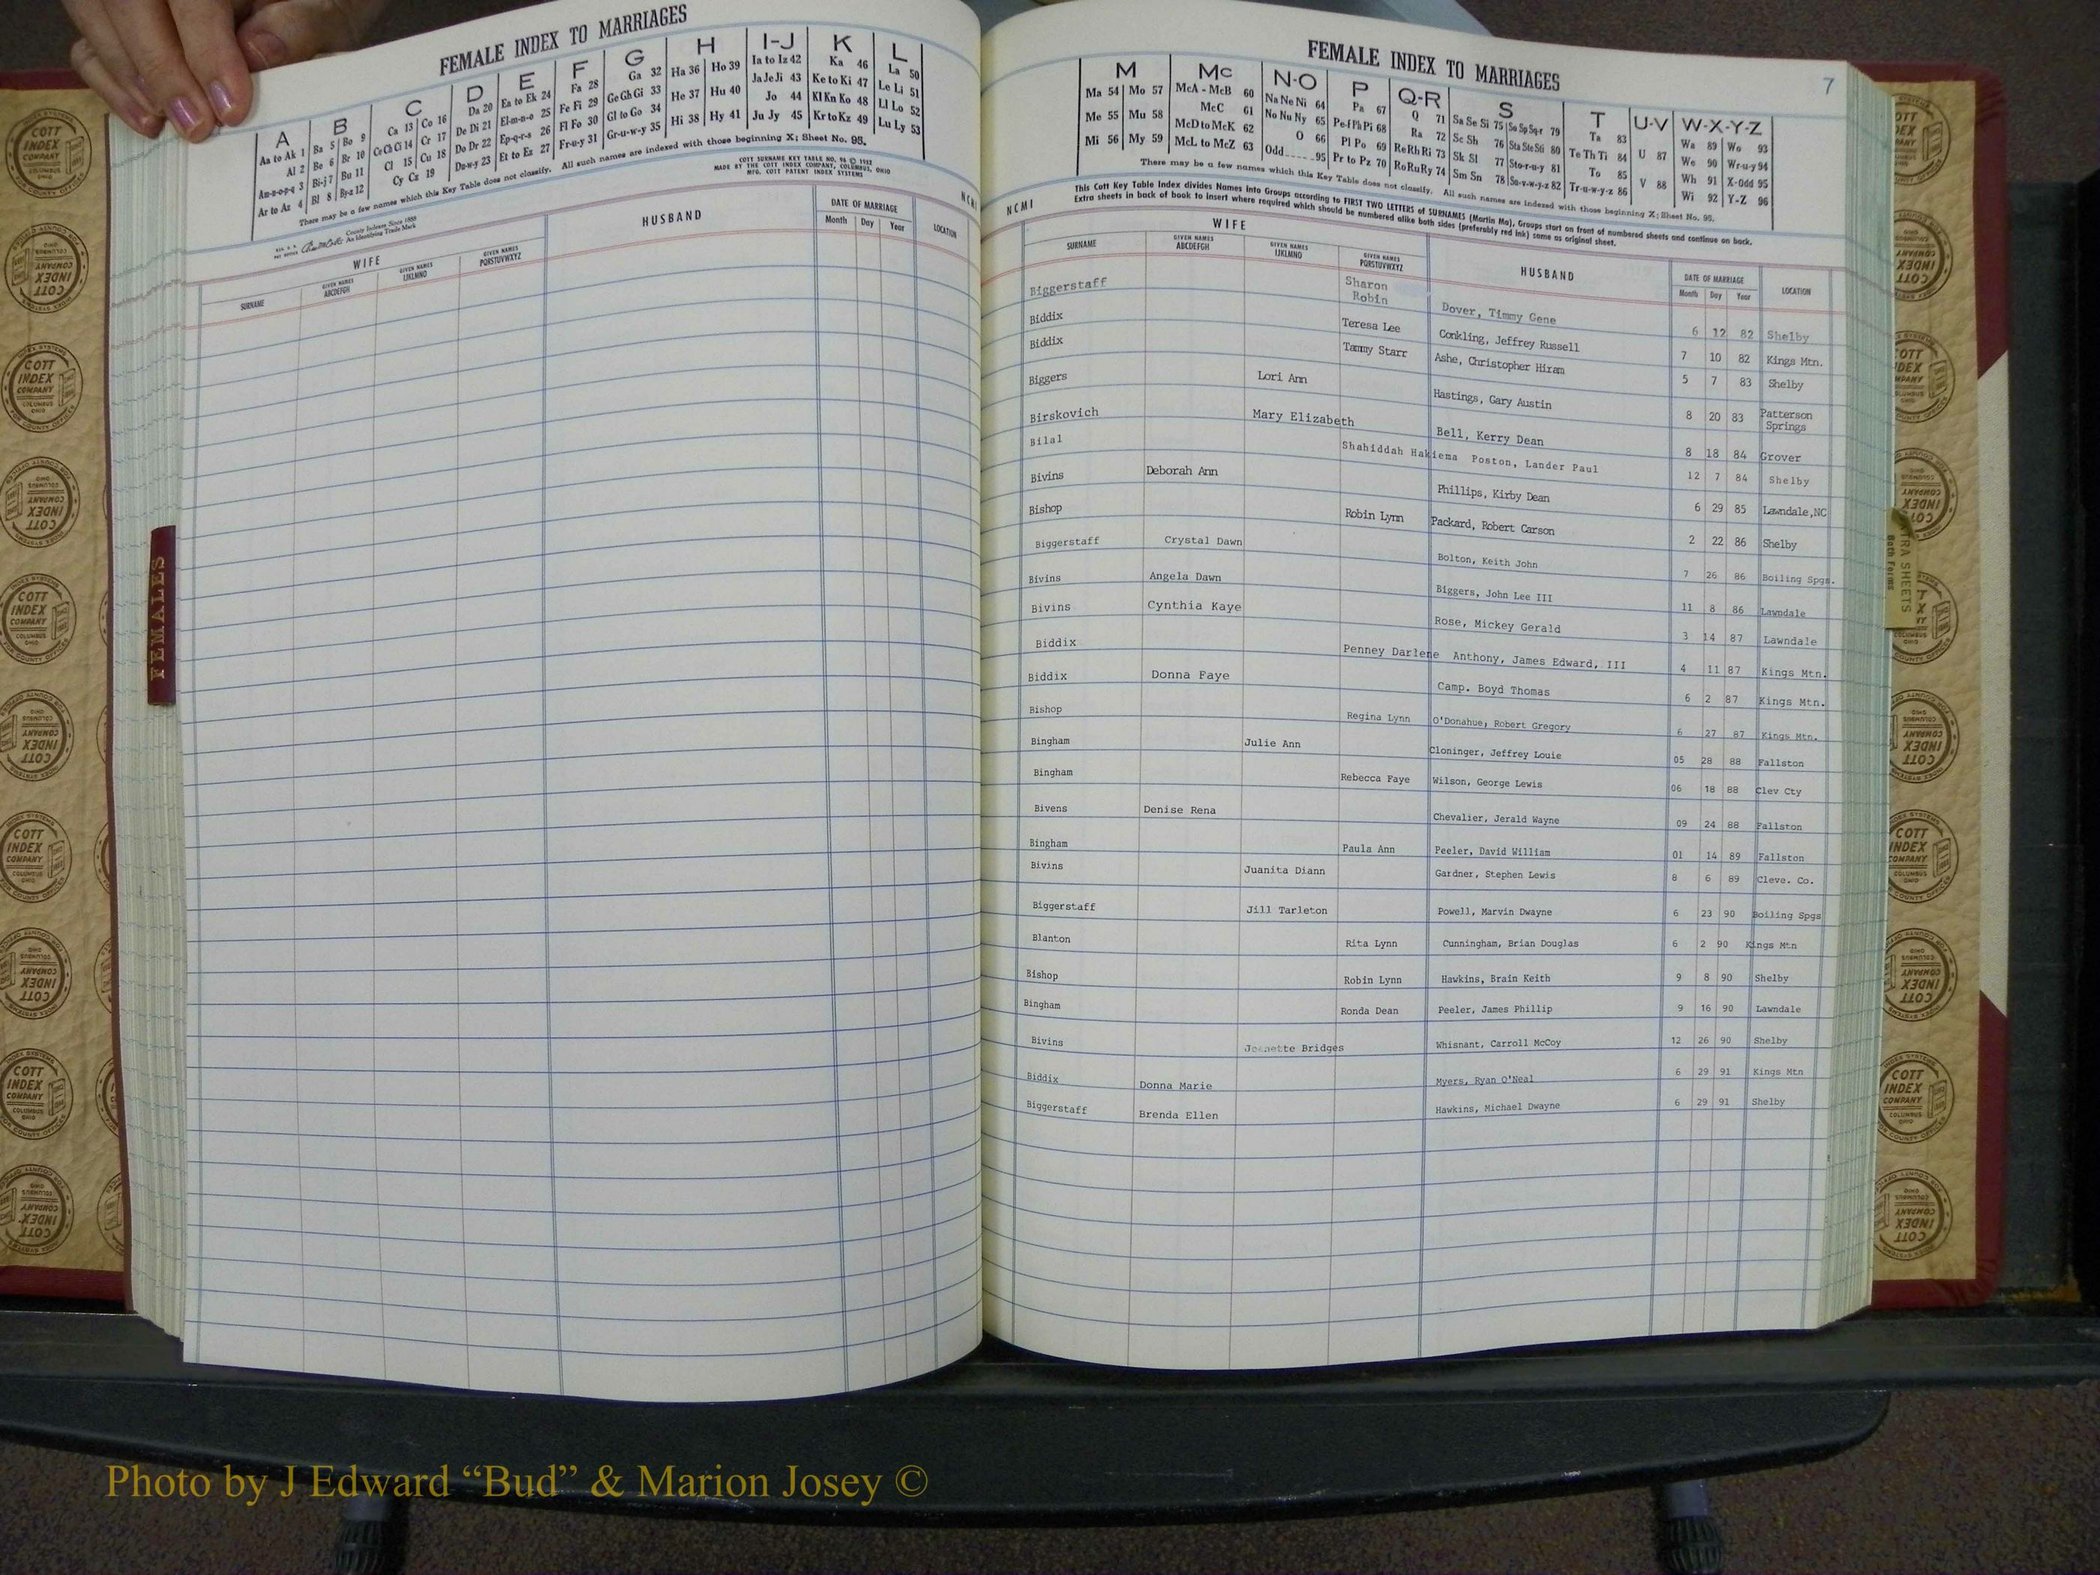 FEMALE INDEX TO MARRIAGES
A B C D E F G H I-J K L
Aa to Ak 1 Ba 5 Bo 9 Ca 13 Co 16 Da 20 Ea to Ek 24 Fa 28 Ga 32 Ha 36 Ho 39 Ia to Iz 42 Ka 46 La 50
Al 2 Be 6 Br 10 Ce Ch Ci 14 Cr 17 De Di 21 El-m-n-o 25 Fe Fi 29 Ge Gh Gi 33 He 37 Hu 40 Ja Je Ji 43 Ke to Ki 47 Le Li 51
Am-n-o-p-q 3 Bi-j 7 Bu 11 Cl 15 Cu 18 Do Dr 22 Ep-q-r-s 26 Fl Fo 30 Gl to Go 34 Hi 38 Hy 41 Jo 44 Kl Kn Ko 48 Ll Lo 52
Ar to Az 4 Bl 8 By-z 12 Cy Cz 19 Du-w-y 23 Et to Ez 27 Fr-u-y 31 Gr-u-w-y 35 Ju Jy 45 Kr to Kz 49 Lu Ly 53
There may be a few names which this Key Table does not classify. All such names are indexed with those beginning X; Sheet No. 95.
COTT SURNAME KEY TABLE NO. 96 © 1952
MADE BY THE COTT INDEX COMPANY, COLUMBUS, OHIO
MFG. COTT PATENT INDEX SYSTEMS
County Indexes Since 1888
An Identifying Trade Mark
NCMI
WIFE HUSBAND DATE OF MARRIAGE LOCATION
SURNAME GIVEN NAMES ABCDEFGH GIVEN NAMES IJKLMNO GIVEN NAMES PQRSTUVWXYZ Month Day Year
FEMALES
FEMALE INDEX TO MARRIAGES
7
M Mc N-O P Q-R S T U-V W-X-Y-Z
Ma 54 Mo 57 McA - McB 60 Na Ne Ni 64 Pa 67 Q 71 Sa Se Si 75 So Sp Sq-r 79 Ta 83 Wa 89 Wo 93
Me 55 Mu 58 McC 61 No Nu Ny 65 Pe-f Ph Pi 68 Ra 72 Sc Sh 76 Sta Ste Sti 80 Te Th Ti 84 U 87 We 90 Wr-u-y 94
Mi 56 My 59 McD to McK 62 O 66 Pl Po 69 Re Rh Ri 73 Sk Sl 77 Sto-r-u-y 81 To 85 V 88 Wh 91 X-Odd 95
McL to McZ 63 Odd 95 Pr to Pz 70 Ro Ru Ry 74 Sm Sn 78 Su-v-w-y-z 82 Tr-u-w-y-z 86 Wi 92 Y-Z 96
There may be a few names which this Key Table does not classify. All such names are indexed with those beginning X; Sheet No. 95.
This Cott Key Table Index divides Names into Groups according to FIRST TWO LETTERS of SURNAMES (Martin Ma), Groups start on front of numbered sheets and continue on back.
Extra sheets in back of book to insert where required which should be numbered alike both sides (preferably red ink) same as original sheet.
NCMI
WIFE HUSBAND DATE OF MARRIAGE LOCATION
SURNAME GIVEN NAMES ABCDEFGH GIVEN NAMES IJKLMNO GIVEN NAMES PQRSTUVWXYZ Month Day Year
Biggerstaff Sharon Robin Dover, Timmy Gene 6 12 82 Shelby
Biddix Teresa Lee Conkling, Jeffrey Russell 7 10 82 Kings Mtn.
Biddix Tammy Starr Ashe, Christopher Hiram 5 7 83 Shelby
Biggers Lori Ann Hastings, Gary Austin 8 20 83 Patterson Springs
Birskovich Mary Elizabeth Bell, Kerry Dean 8 18 84 Grover
Bilal Shahiddah Hakiema Poston, Lander Paul 12 7 84 Shelby
Bivins Deborah Ann Phillips, Kirby Dean 6 29 85 Lawndale,NC
Bishop Robin Lynn Packard, Robert Carson 2 22 86 Shelby
Biggerstaff Crystal Dawn Bolton, Keith John 7 26 86 Boiling Spgs.
Bivins Angela Dawn Biggers, John Lee III 11 8 86 Lawndale
Bivins Cynthia Kaye Rose, Mickey Gerald 3 14 87 Lawndale
Biddix Penney Darlene Anthony, James Edward, III 4 11 87 Kings Mtn.
Biddix Donna Faye Camp. Boyd Thomas 6 2 87 Kings Mtn.
Bishop Regina Lynn O'Donahue, Robert Gregory 6 27 87 Kings Mtn.
Bingham Julie Ann Cloninger, Jeffrey Louie 05 28 88 Fallston
Bingham Rebecca Faye Wilson, George Lewis 06 18 88 Clev Cty
Bivens Denise Rena Chevalier, Jerald Wayne 09 24 88 Fallston
Bingham Paula Ann Peeler, David William 01 14 89 Fallston
Bivins Juanita Diann Gardner, Stephen Lewis 8 6 89 Cleve. Co.
Biggerstaff Jill Tarleton Powell, Marvin Dwayne 6 23 90 Boiling Spgs
Blanton Rita Lynn Cunningham, Brian Douglas 6 2 90 Kings Mtn
Bishop Robin Lynn Hawkins, Brain Keith 9 8 90 Shelby
Bingham Ronda Dean Peeler, James Phillip 9 16 90 Lawndale
Bivins Jeanette Bridges Whisnant, Carroll McCoy 12 26 90 Shelby
Biddix Donna Marie Myers, Ryan O'Neal 6 29 91 Kings Mtn
Biggerstaff Brenda Ellen Hawkins, Michael Dwayne 6 29 91 Shelby
COTT INDEX COMPANY COLUMBUS OHIO
Photo by J Edward “Bud” & Marion Josey ©